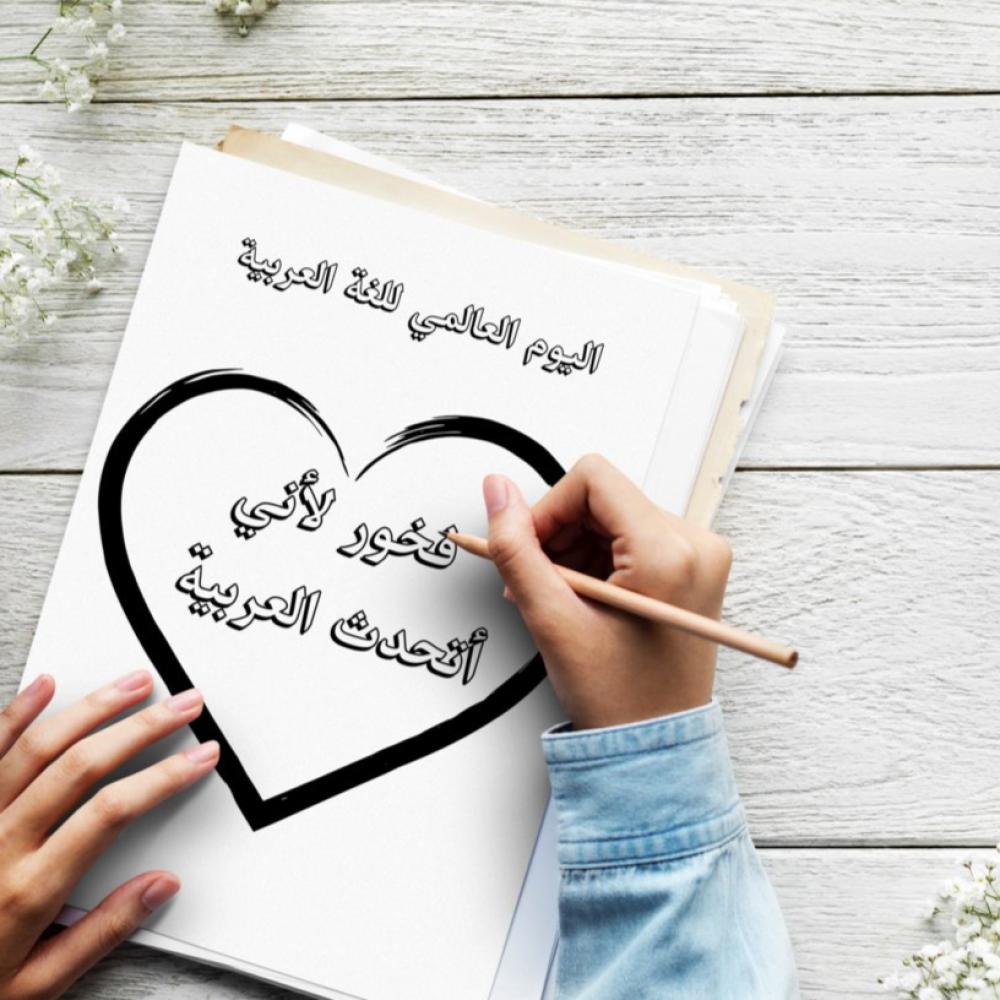 اليوم العالمي للغة العربية
فخور لأني
أتحدث العربية